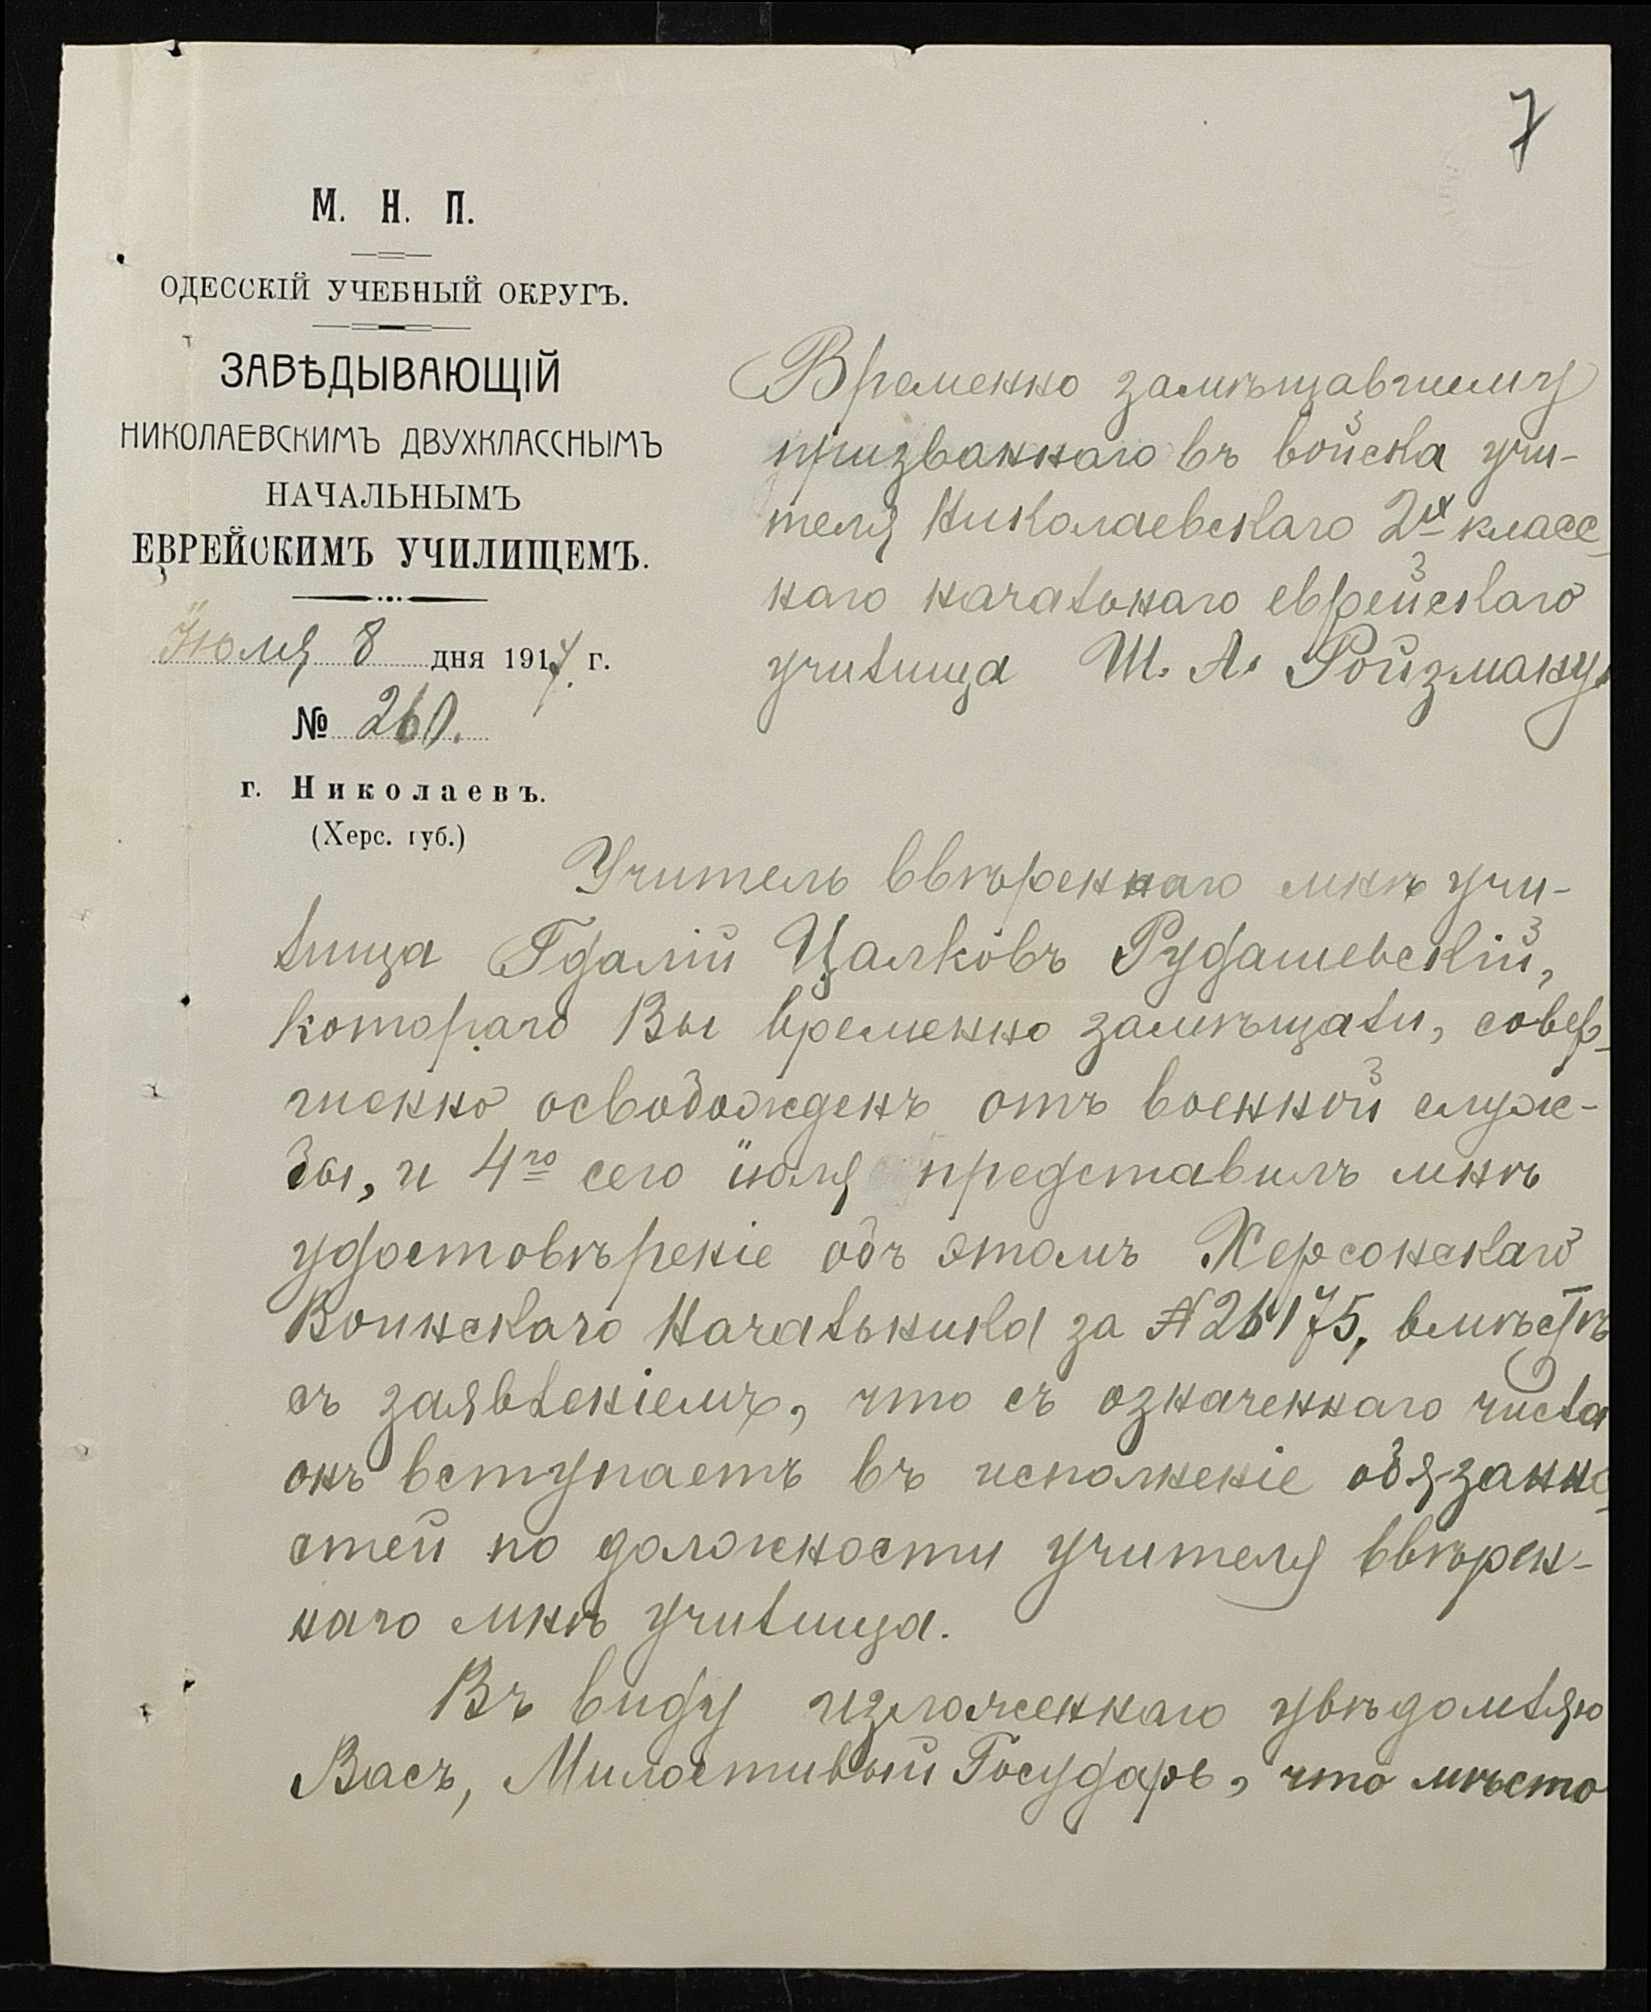 7
М. Н. П.
ОДЕССКІЙ УЧЕБНЫЙ ОКРУГЪ.
ЗАВѢДЫВАЮЩІЙ
НИКОЛАЕВСКИМЪ ДВУХКЛАССНЫМЪ
НАЧАЛЬНЫМЪ
ЕВРЕЙСКИМЪ УЧИЛИЩЕМЪ.
Іюля 8 дня 1917 г.
№ 260.
г. Николаевъ.
(Херс. губ.)
Временно замѣщавшему
призваннаго въ войска учи-
теля Николаевскаго 2х класс-
наго начальнаго еврейскаго
училища Ш. А. Ройзману.
Учитель ввѣреннаго мнѣ учи-
лища Гдалій Цалковъ Рудашевскій,
котораго Вы временно замѣщали, совер-
шенно освобожденъ отъ военной служ-
бы, и 4го сего іюля представилъ мнѣ
удостовѣреніе объ этомъ Херсонскаго
Воинскаго Начальника за № 26175, вмѣстѣ
съ заявленіемъ, что съ означеннаго числа
онъ вступаетъ въ исполненіе обязанно-
стей по должности учителя ввѣрен-
наго мнѣ училища.
Въ виду изложеннаго увѣдомляю
Васъ, Милостивый Государь, что мѣсто